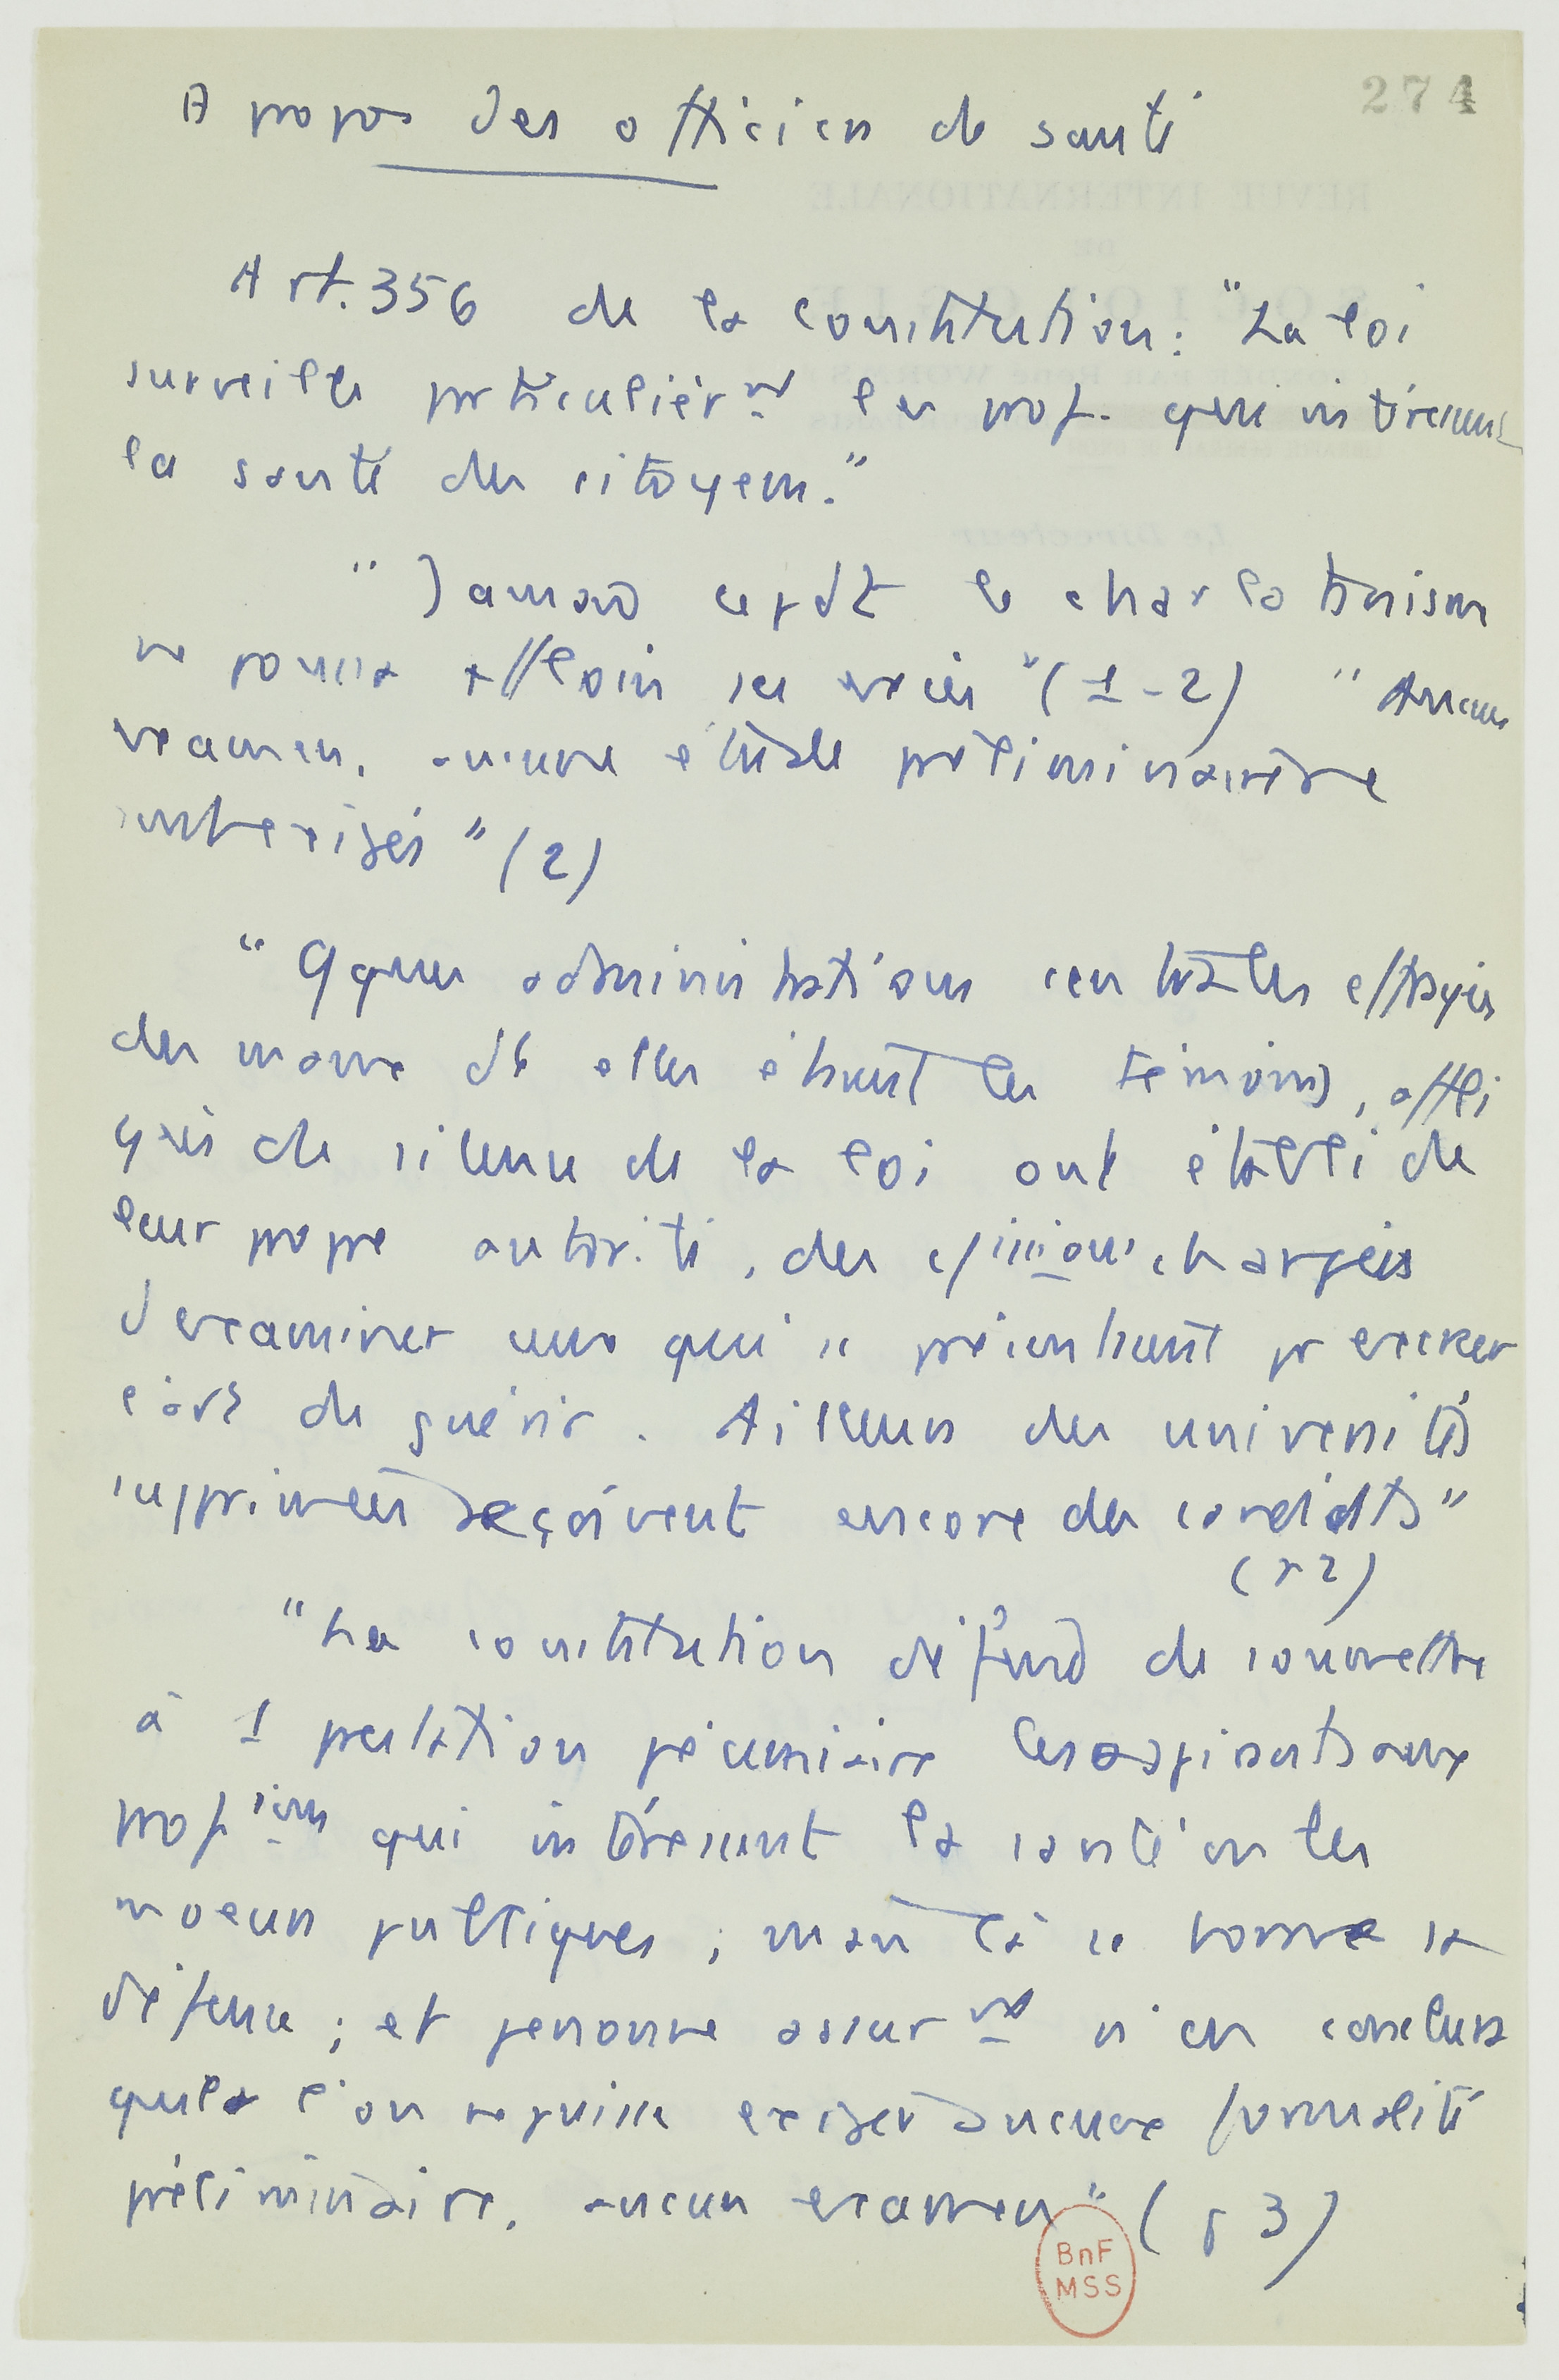 274
A propos des officiers de santé
Art. 356 de la constitution : "La loi
surveille prticulièrnt les prof. qui intéressent
la santé des citoyens."
"Jamais cepdt le charlatanisme
ne poussa + loin ses excès" (1-2) "Aucun
examen, aucune étude préliminaire
exigés" (2)
"Qques administrations centrales effrayées
des maux dt elles étaient les témoins, affli
gées du silence de la loi ont établi de
leur propre autorité, des cssions chargées
d'examiner ceux qui se présentaient pr exercer
l'art de guérir. Ailleurs des universités
supprimées reçoivent encore des candidats"
(p 2)
"La constitution défend de soumettre
à 1 prestation pécuniaire les aspirants aux
profsions qui intéressent la santé ou les
moeurs publiques ; mais là se borne sa
défense ; et personne assurnt n'en conclura
que l'on ne puisse exiger aucune formalité
préliminaire, aucun examen" (p 3)
BnF
MSS